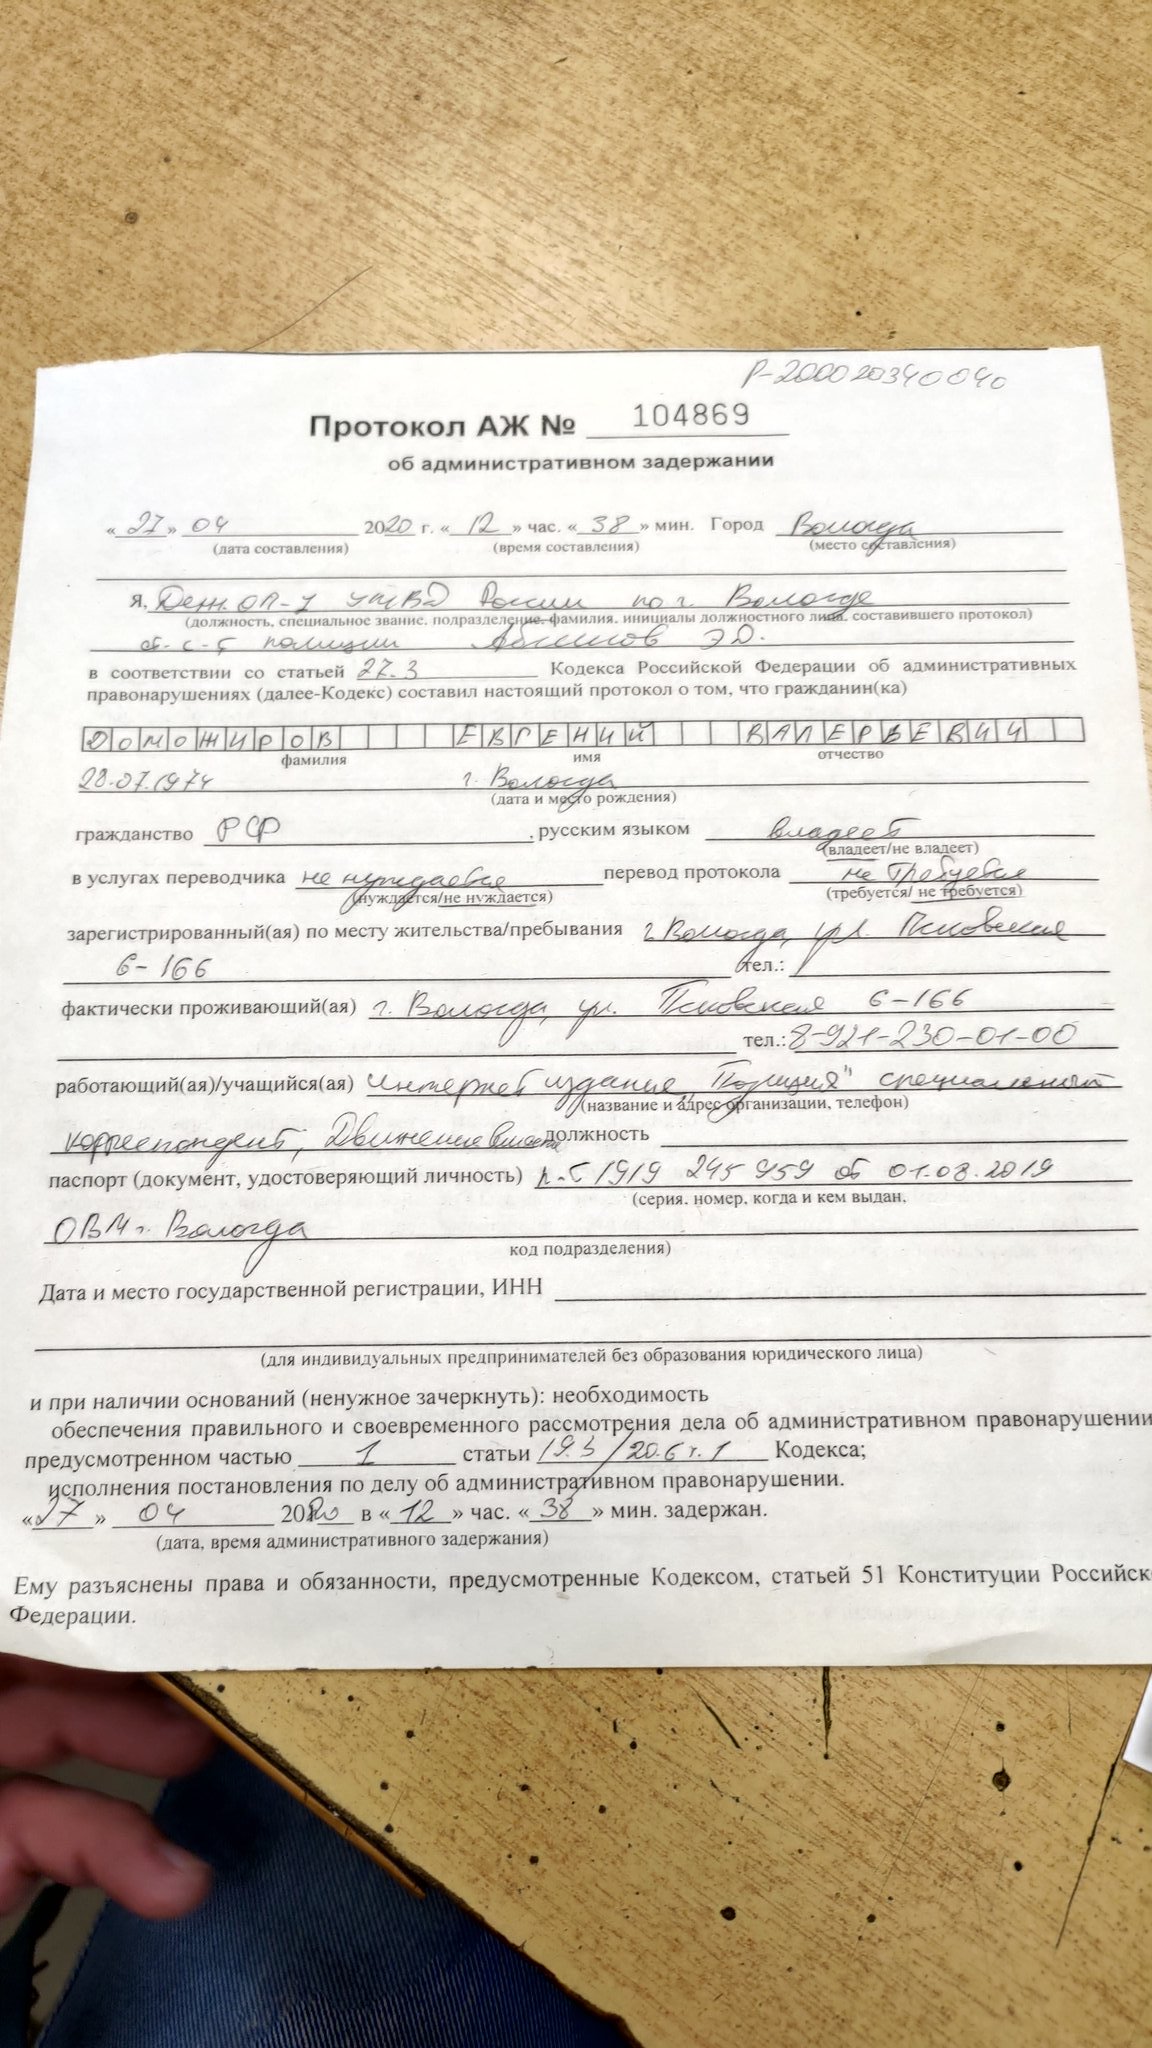 Р-200020340040
Протокол АЖ № 104869
об административном задержании
«27» 04 2020 г. «12» час. «38» мин. Город Вологда
(дата составления) (время составления) (место составления)
Я, Деж. ОП-1 УМВД России по г. Вологде
(должность, специальное звание, подразделение, фамилия, инициалы должностного лица, составившего протокол)
полиции Э.Д.
в соответствии со статьей 27.3 Кодекса Российской Федерации об административных
правонарушениях (далее-Кодекс) составил настоящий протокол о том, что гражданин(ка)
ДОМОЖИРОВ ЕВГЕНИЙ ВАЛЕРЬЕВИЧ
фамилия имя отчество
28.07.1974 г. Вологда
(дата и место рождения)
гражданство РФ , русским языком владеет
(владеет/не владеет)
в услугах переводчика не нуждается перевод протокола не требуется
(нуждается/не нуждается) (требуется/ не требуется)
зарегистрированный(ая) по месту жительства/пребывания г. Вологда, ул. Псковская
6-166 тел.:
фактически проживающий(ая) г. Вологда, ул. Псковская 6-166
тел.: 8-921-230-01-00
работающий(ая)/учащийся(ая) интернет издание "Позиция" специальный
(название и адрес организации, телефон)
корреспондент, Движение должность
паспорт (документ, удостоверяющий личность) п-т 1919 245959 от 01.08.2019
(серия, номер, когда и кем выдан,
ОВМ г. Вологда
код подразделения)
Дата и место государственной регистрации, ИНН
(для индивидуальных предпринимателей без образования юридического лица)
и при наличии оснований (ненужное зачеркнуть): необходимость
обеспечения правильного и своевременного рассмотрения дела об административном правонарушении
предусмотренном частью 1 статьи 19.3/20.6.1 Кодекса;
исполнения постановления по делу об административном правонарушении.
«27» 04 2020 в «12» час. «38» мин. задержан.
(дата, время административного задержания)
Ему разъяснены права и обязанности, предусмотренные Кодексом, статьей 51 Конституции Российск
Федерации.